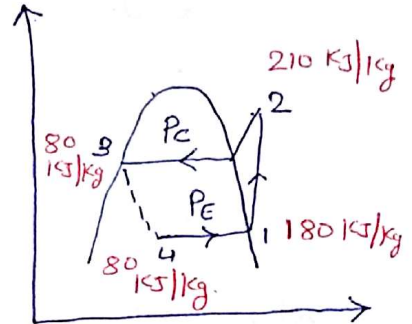 210 KJ/Kg
2
Pc
80 3
KJ/Kg
PE
1 180 KJ/Kg
4
80
KJ/Kg.